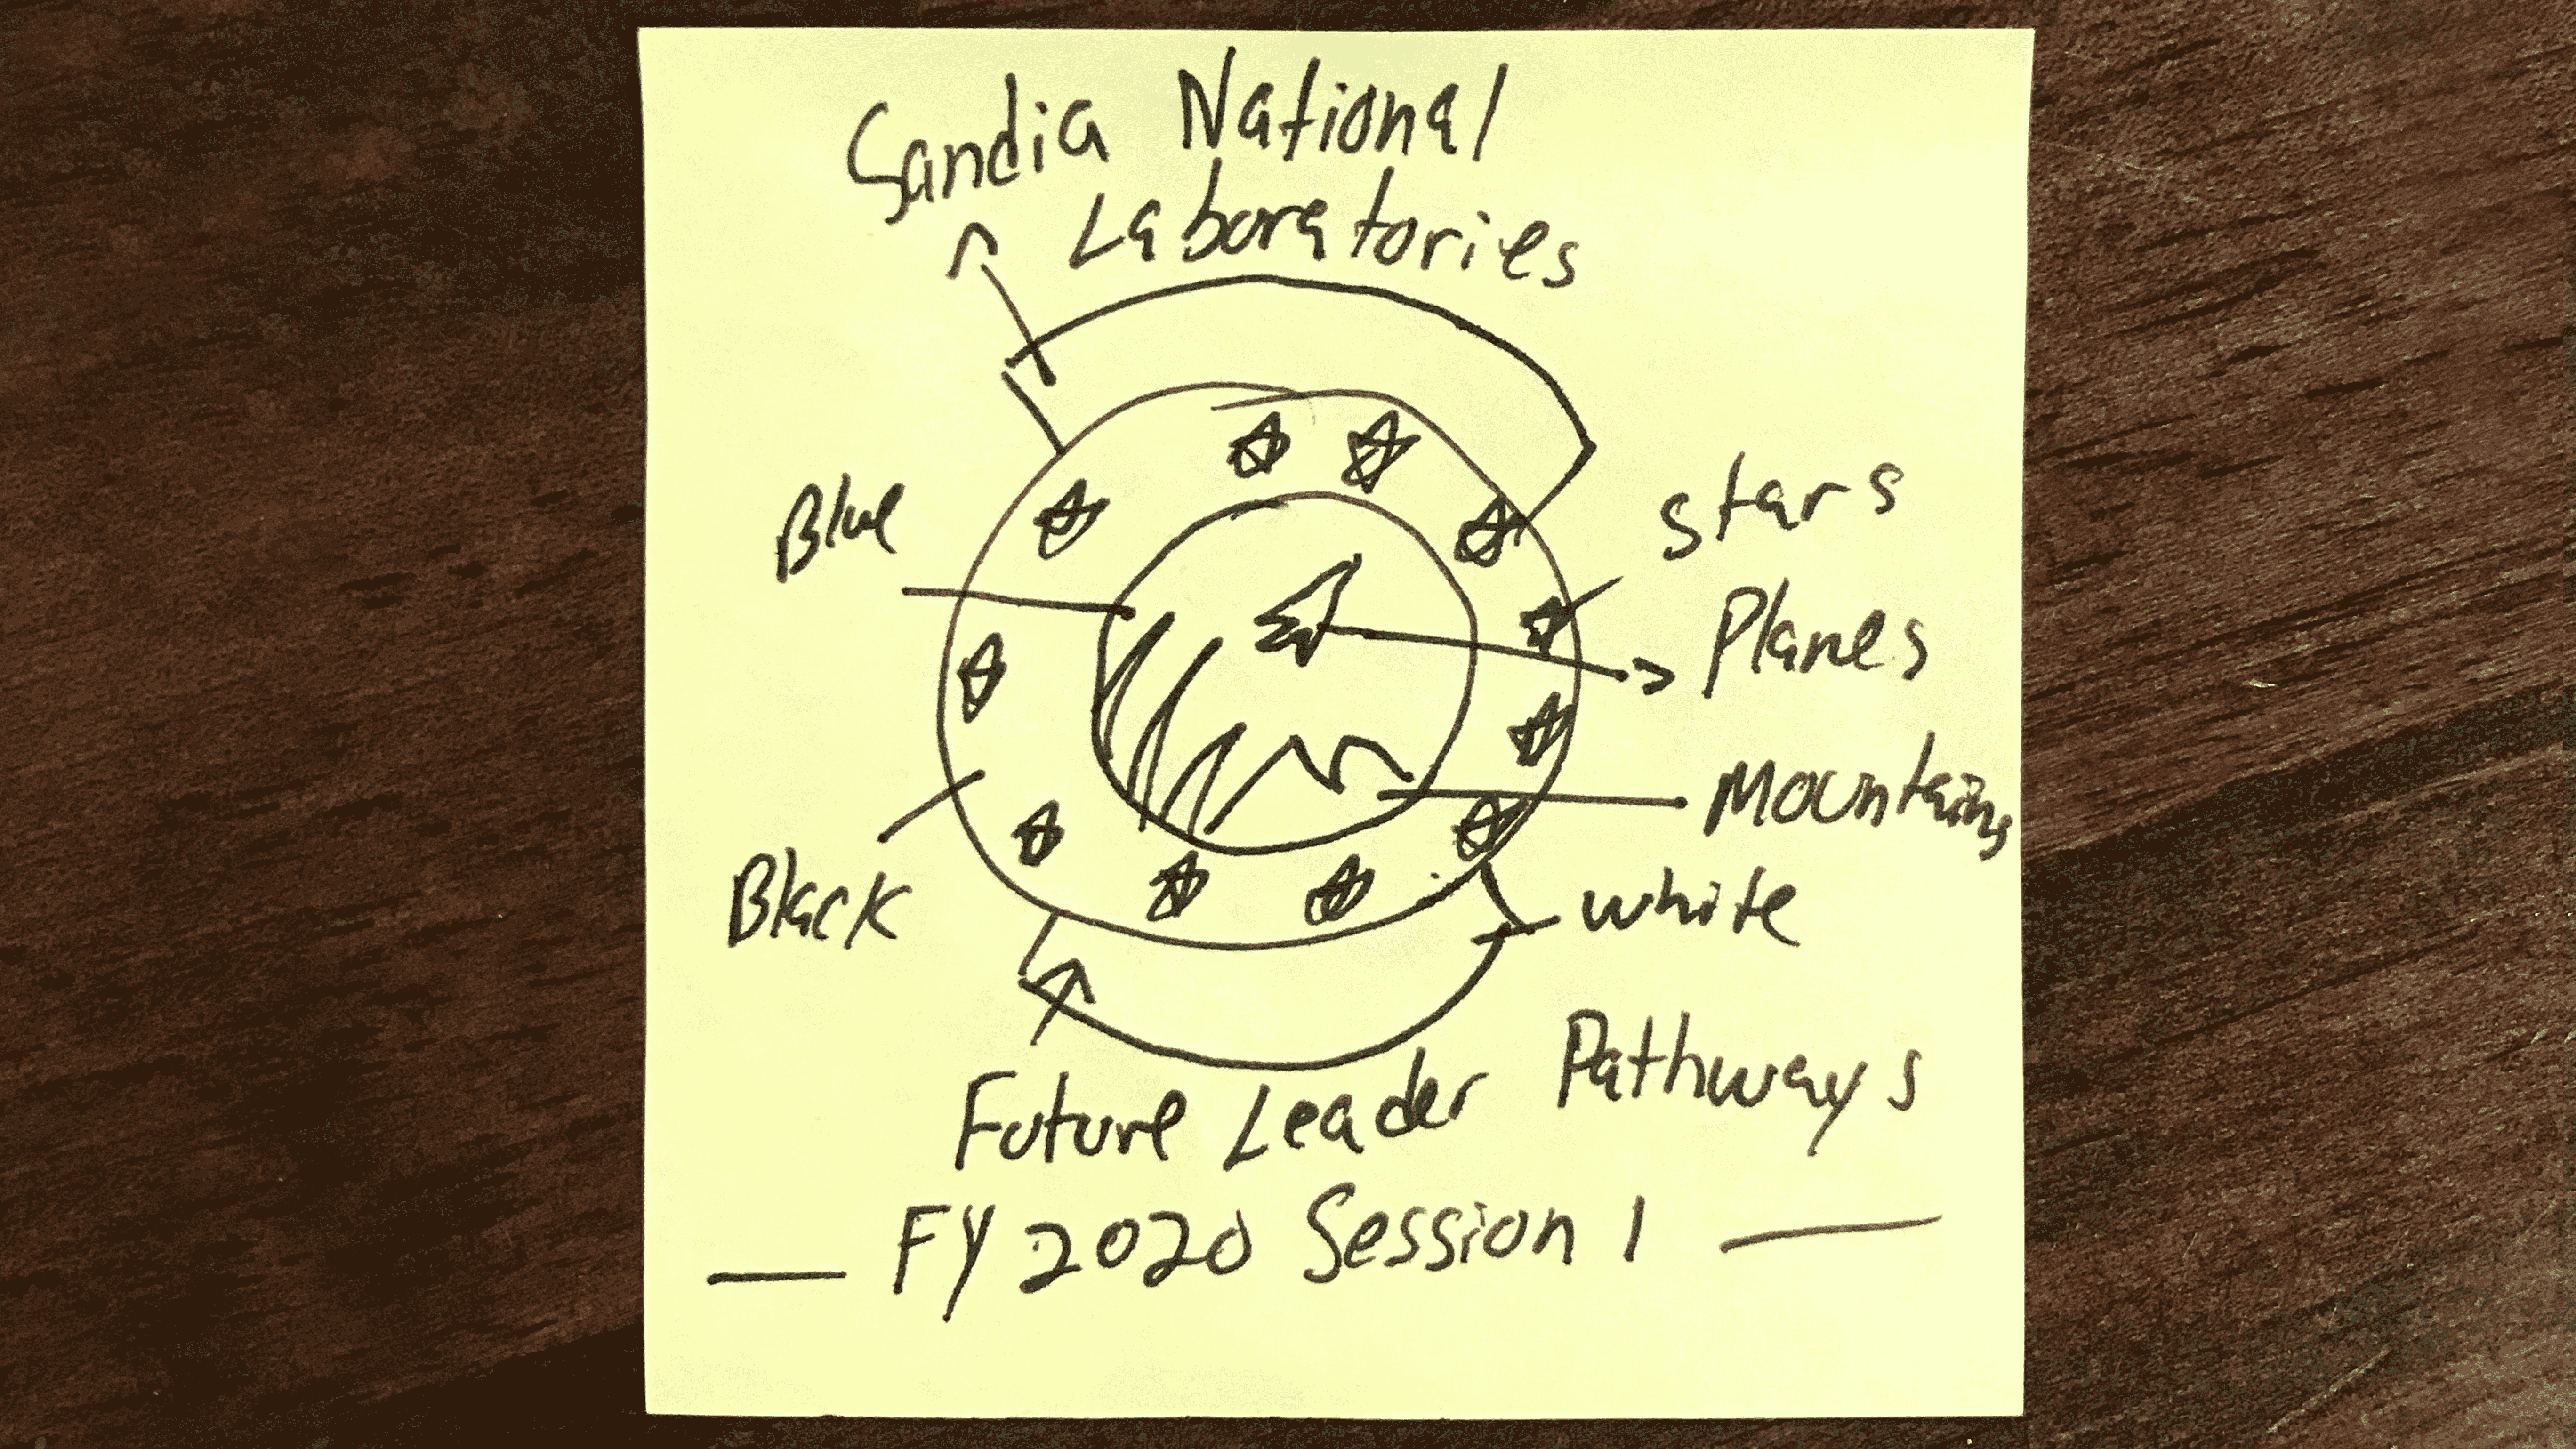 Sandia National
Laboratories
Blue
stars
Planes
Mountains
Black
white
Future Leader Pathways
FY 2020 Session 1